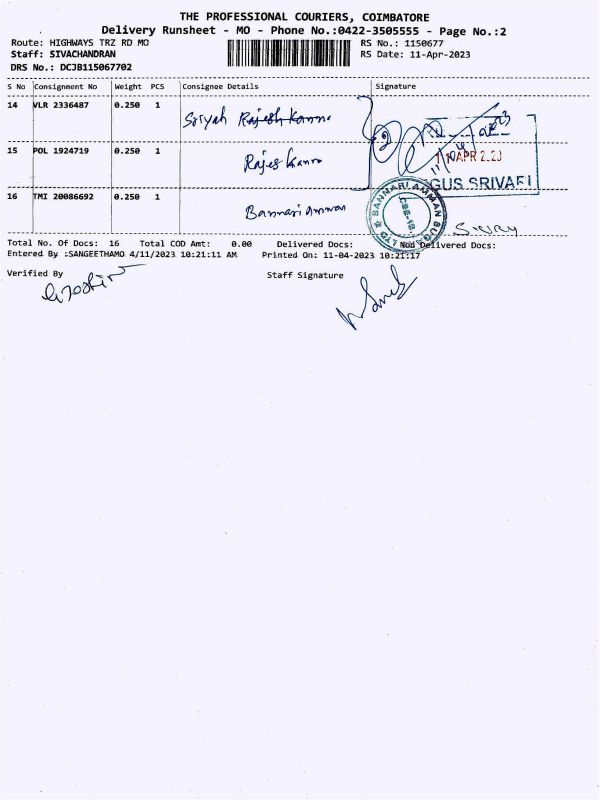 THE PROFESSIONAL COURIERS, COIMBATORE
Delivery Runsheet - MO - Phone No.:0422-3505555 - Page No.:2
Route: HIGHWAYS TRZ RD MO RS No.: 1150677
Staff: SIVACHANDRAN RS Date: 11-Apr-2023
DRS No.: DCJB115067702
S No Consignment No Weight PCS Consignee Details Signature
14 VLR 2336487 0.250 1 Sriyah Rajesh Kanna
15 POL 1924719 0.250 1 Rajes Kanna
11 APR 2023
GUS SRIVARI
16 TMI 20086692 0.250 1 Bannari Amman
BANNARI AMMAN SUGARS LTD
CBE-18.
Total No. Of Docs: 16 Total COD Amt: 0.00 Delivered Docs: Not Delivered Docs:
Entered By :SANGEETHAMO 4/11/2023 10:21:11 AM Printed On: 11-04-2023 10:21:17
Verified By Staff Signature